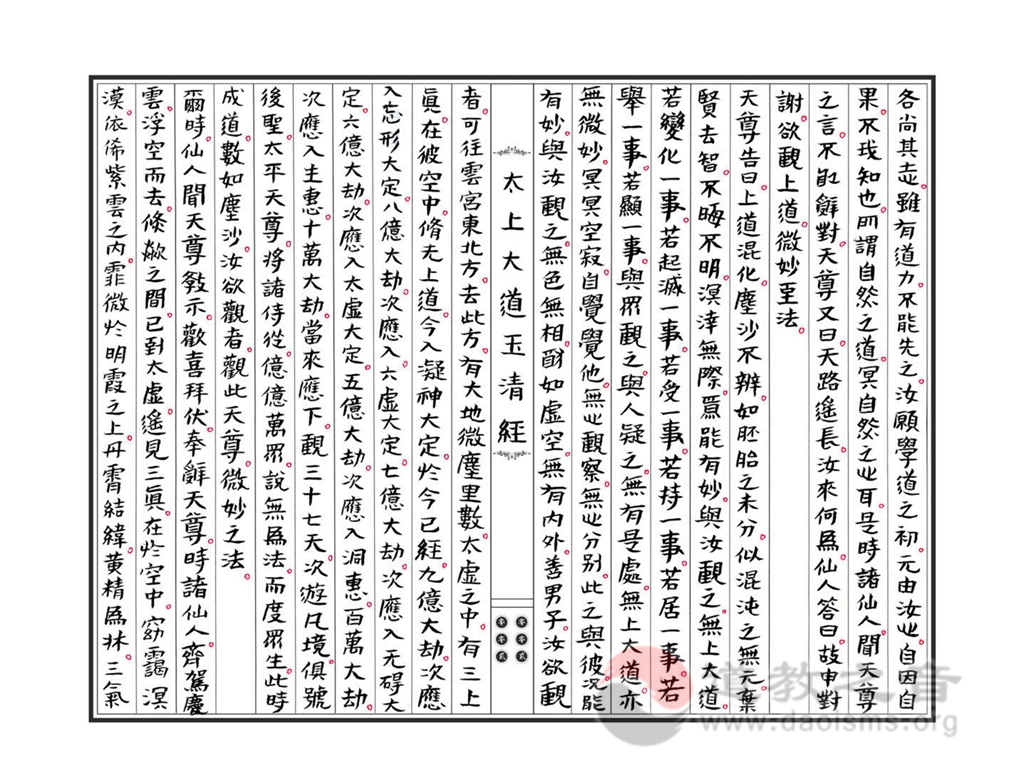 各尚其志雖有道力不能先之汝願學道之初元由汝心自因自
果不我知也所謂自然之道冥自然之心耳是時諸仙人聞天尊
之言不能辭對天尊又曰天路遙長汝來何為仙人答曰故中對
謝欲觀上道微妙至法
天尊告曰上道混化塵沙不辨如胚胎之未分似混沌之無元棄
賢去智不晦不明溟涬無際焉能有妙與汝觀之無上大道
若變化一事若起滅一事若受一事若持一事若居一事若
舉一事若顯一事與眾觀之與人疑之無有是處無上大道亦
無微妙冥冥空寂自覺覺他無心觀察無心分別此之與彼況能
有妙與汝觀之無色無相附如虛空無有內外善男子汝欲觀
太上大道玉清經
零零零零零貳
者可往雲宮東北方去此方有大地微塵里數太虛之中有三上
真在彼空中脩无上道今入凝神大定於今已經九億大劫次應
入忘形大定八億大劫次應入六虛大定七億大劫次應入无碍大
定六億大劫次應入太虛大定五億大劫次應入洞惠百萬大劫
次應入生惠十萬大劫當來應下觀三十七天次遊凡境俱號
後聖太平天尊將諸侍從億億萬眾說無為法而度眾生此時
成道數如塵沙汝欲觀者觀此天尊微妙之法
爾時仙人聞天尊教示歡喜拜伏奉辭天尊時諸仙人齊駕慶
雲浮空而去倏歘之間已到太虛遙見三真在於空中窈靄溟
漠依俙紫雲之內霏微於明霞之上丹霄結緯黃精為牀三氣
道教之音
www.daoisms.org